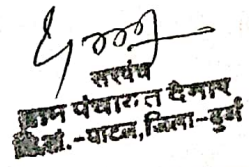 सरपंच
ग्राम पंचायत देमार
वि.खं.-पाटन, जिला-दुर्ग